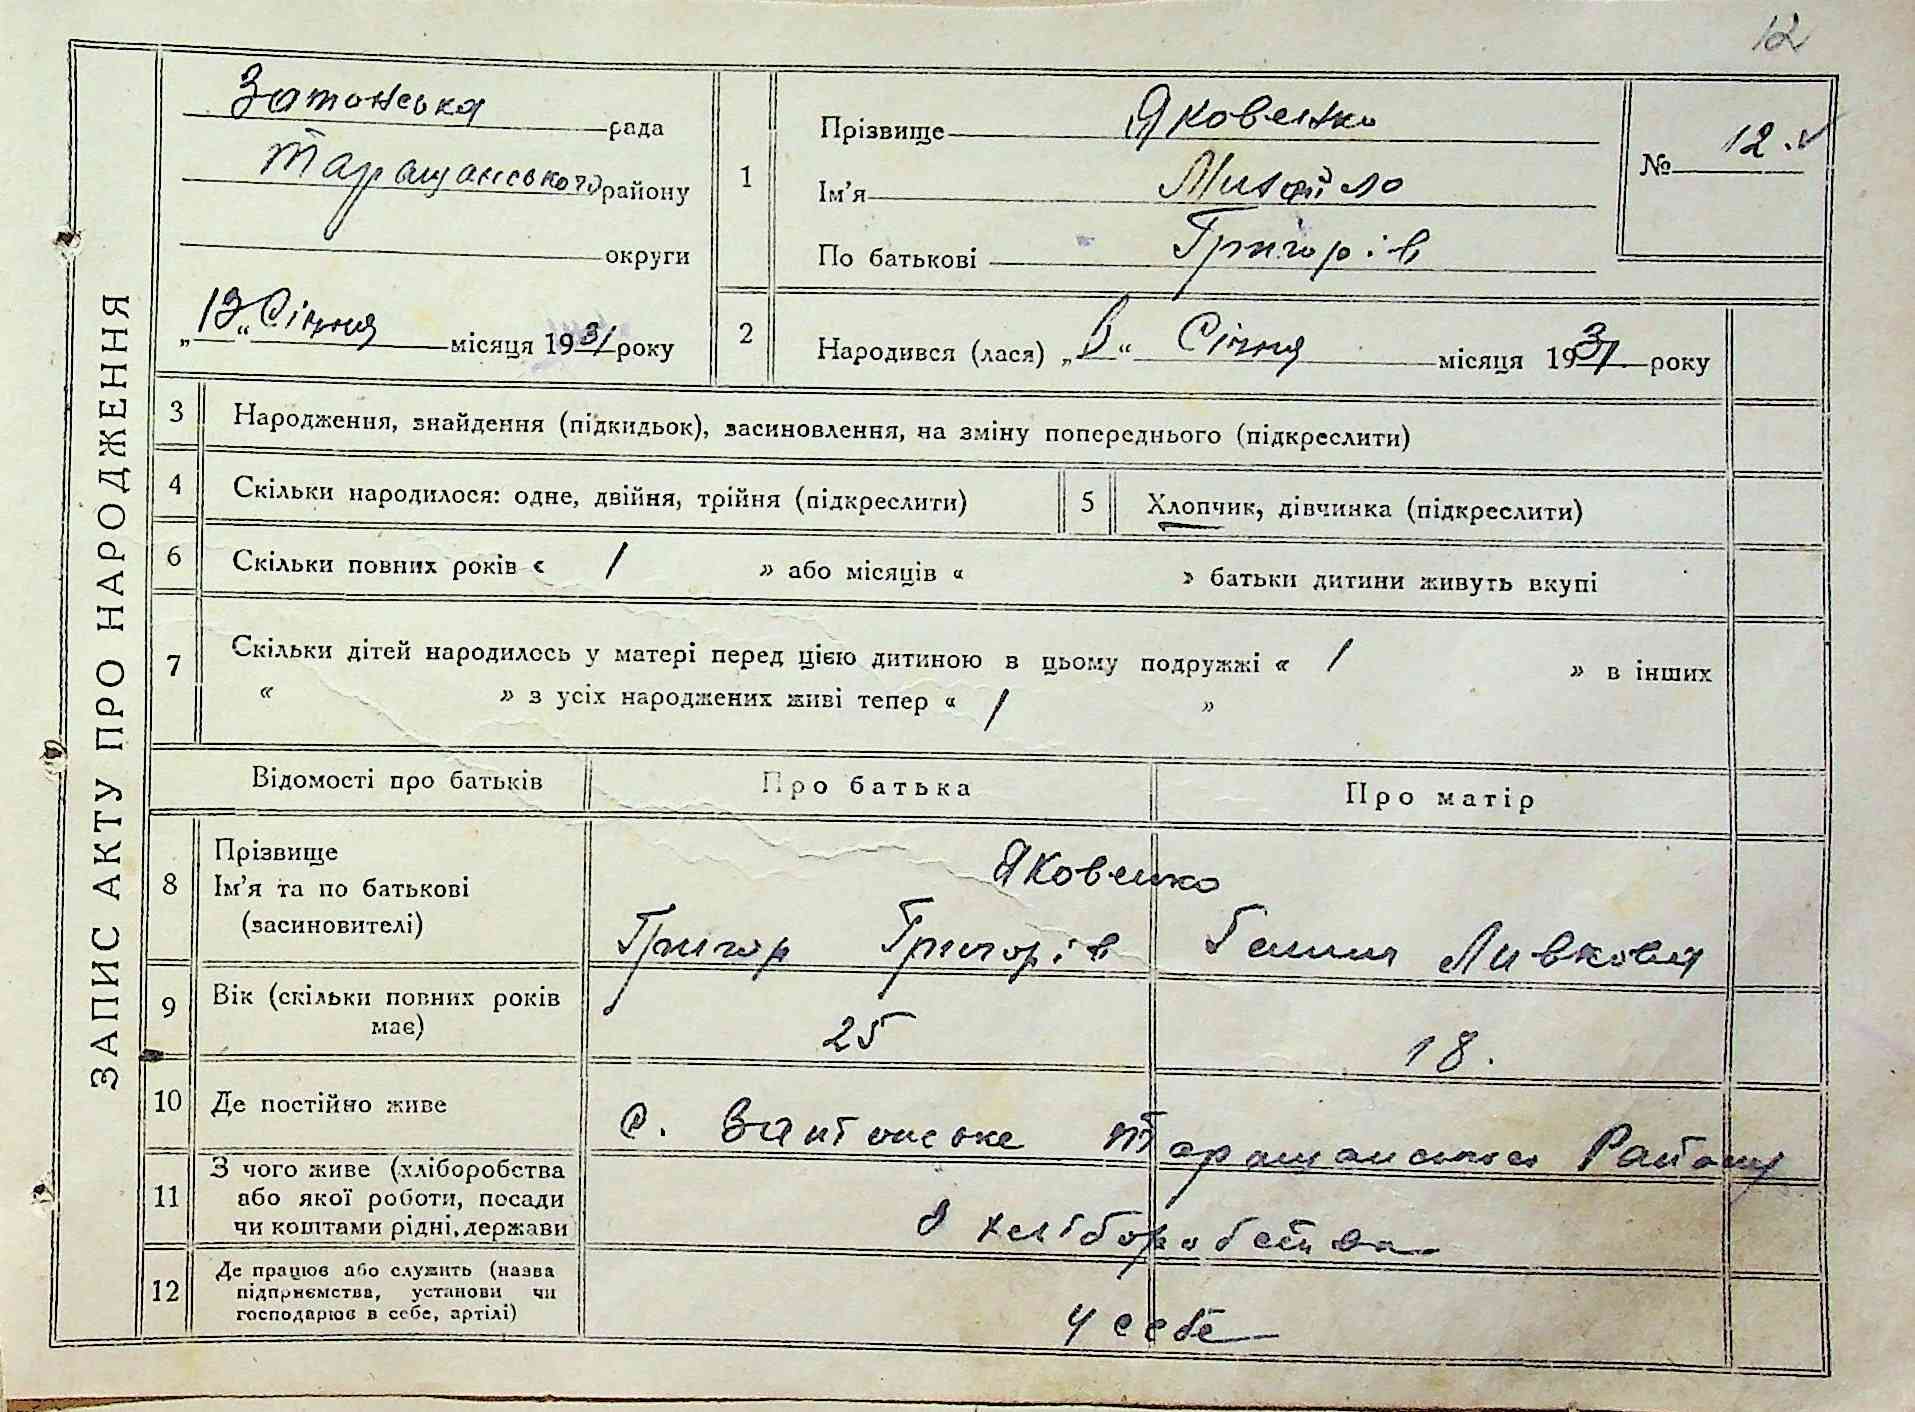 12
ЗАПИС АКТУ ПРО НАРОДЖЕННЯ
Затонська рада
Таращанського району
округи
„13“ Січня місяця 1931 року
1
Прізвище Яковенко
Ім'я Михайло
По батькові Григорів
№ 12.
2
Народився (лася) „ “ Січня місяця 1931 року
3 Народження, знайдення (підкидьок), засиновлення, на зміну попереднього (підкреслити)
4 Скільки народилося: одне, двійня, трійня (підкреслити)
5 Хлопчик, дівчинка (підкреслити)
6 Скільки повних років « / » або місяців « » батьки дитини живуть вкупі
7 Скільки дітей народилось у матері перед цією дитиною в цьому подружжі « / » в інших
« » з усіх народжених живі тепер « / »
Відомості про батьків Про батька Про матір
8 Прізвище
Ім'я та по батькові
(засиновителі)
Яковенко
Григор Григорів Ганна
9 Вік (скільки повних років
має)
25 18.
10 Де постійно живе
с. Затонське Таращанського Району
11 З чого живе (хліборобства
або якої роботи, посади
чи коштами рідні, держави
з хліборобства
12 Де працює або служить (назва
підприємства, установи чи
господарює в себе, артілі)
у себе